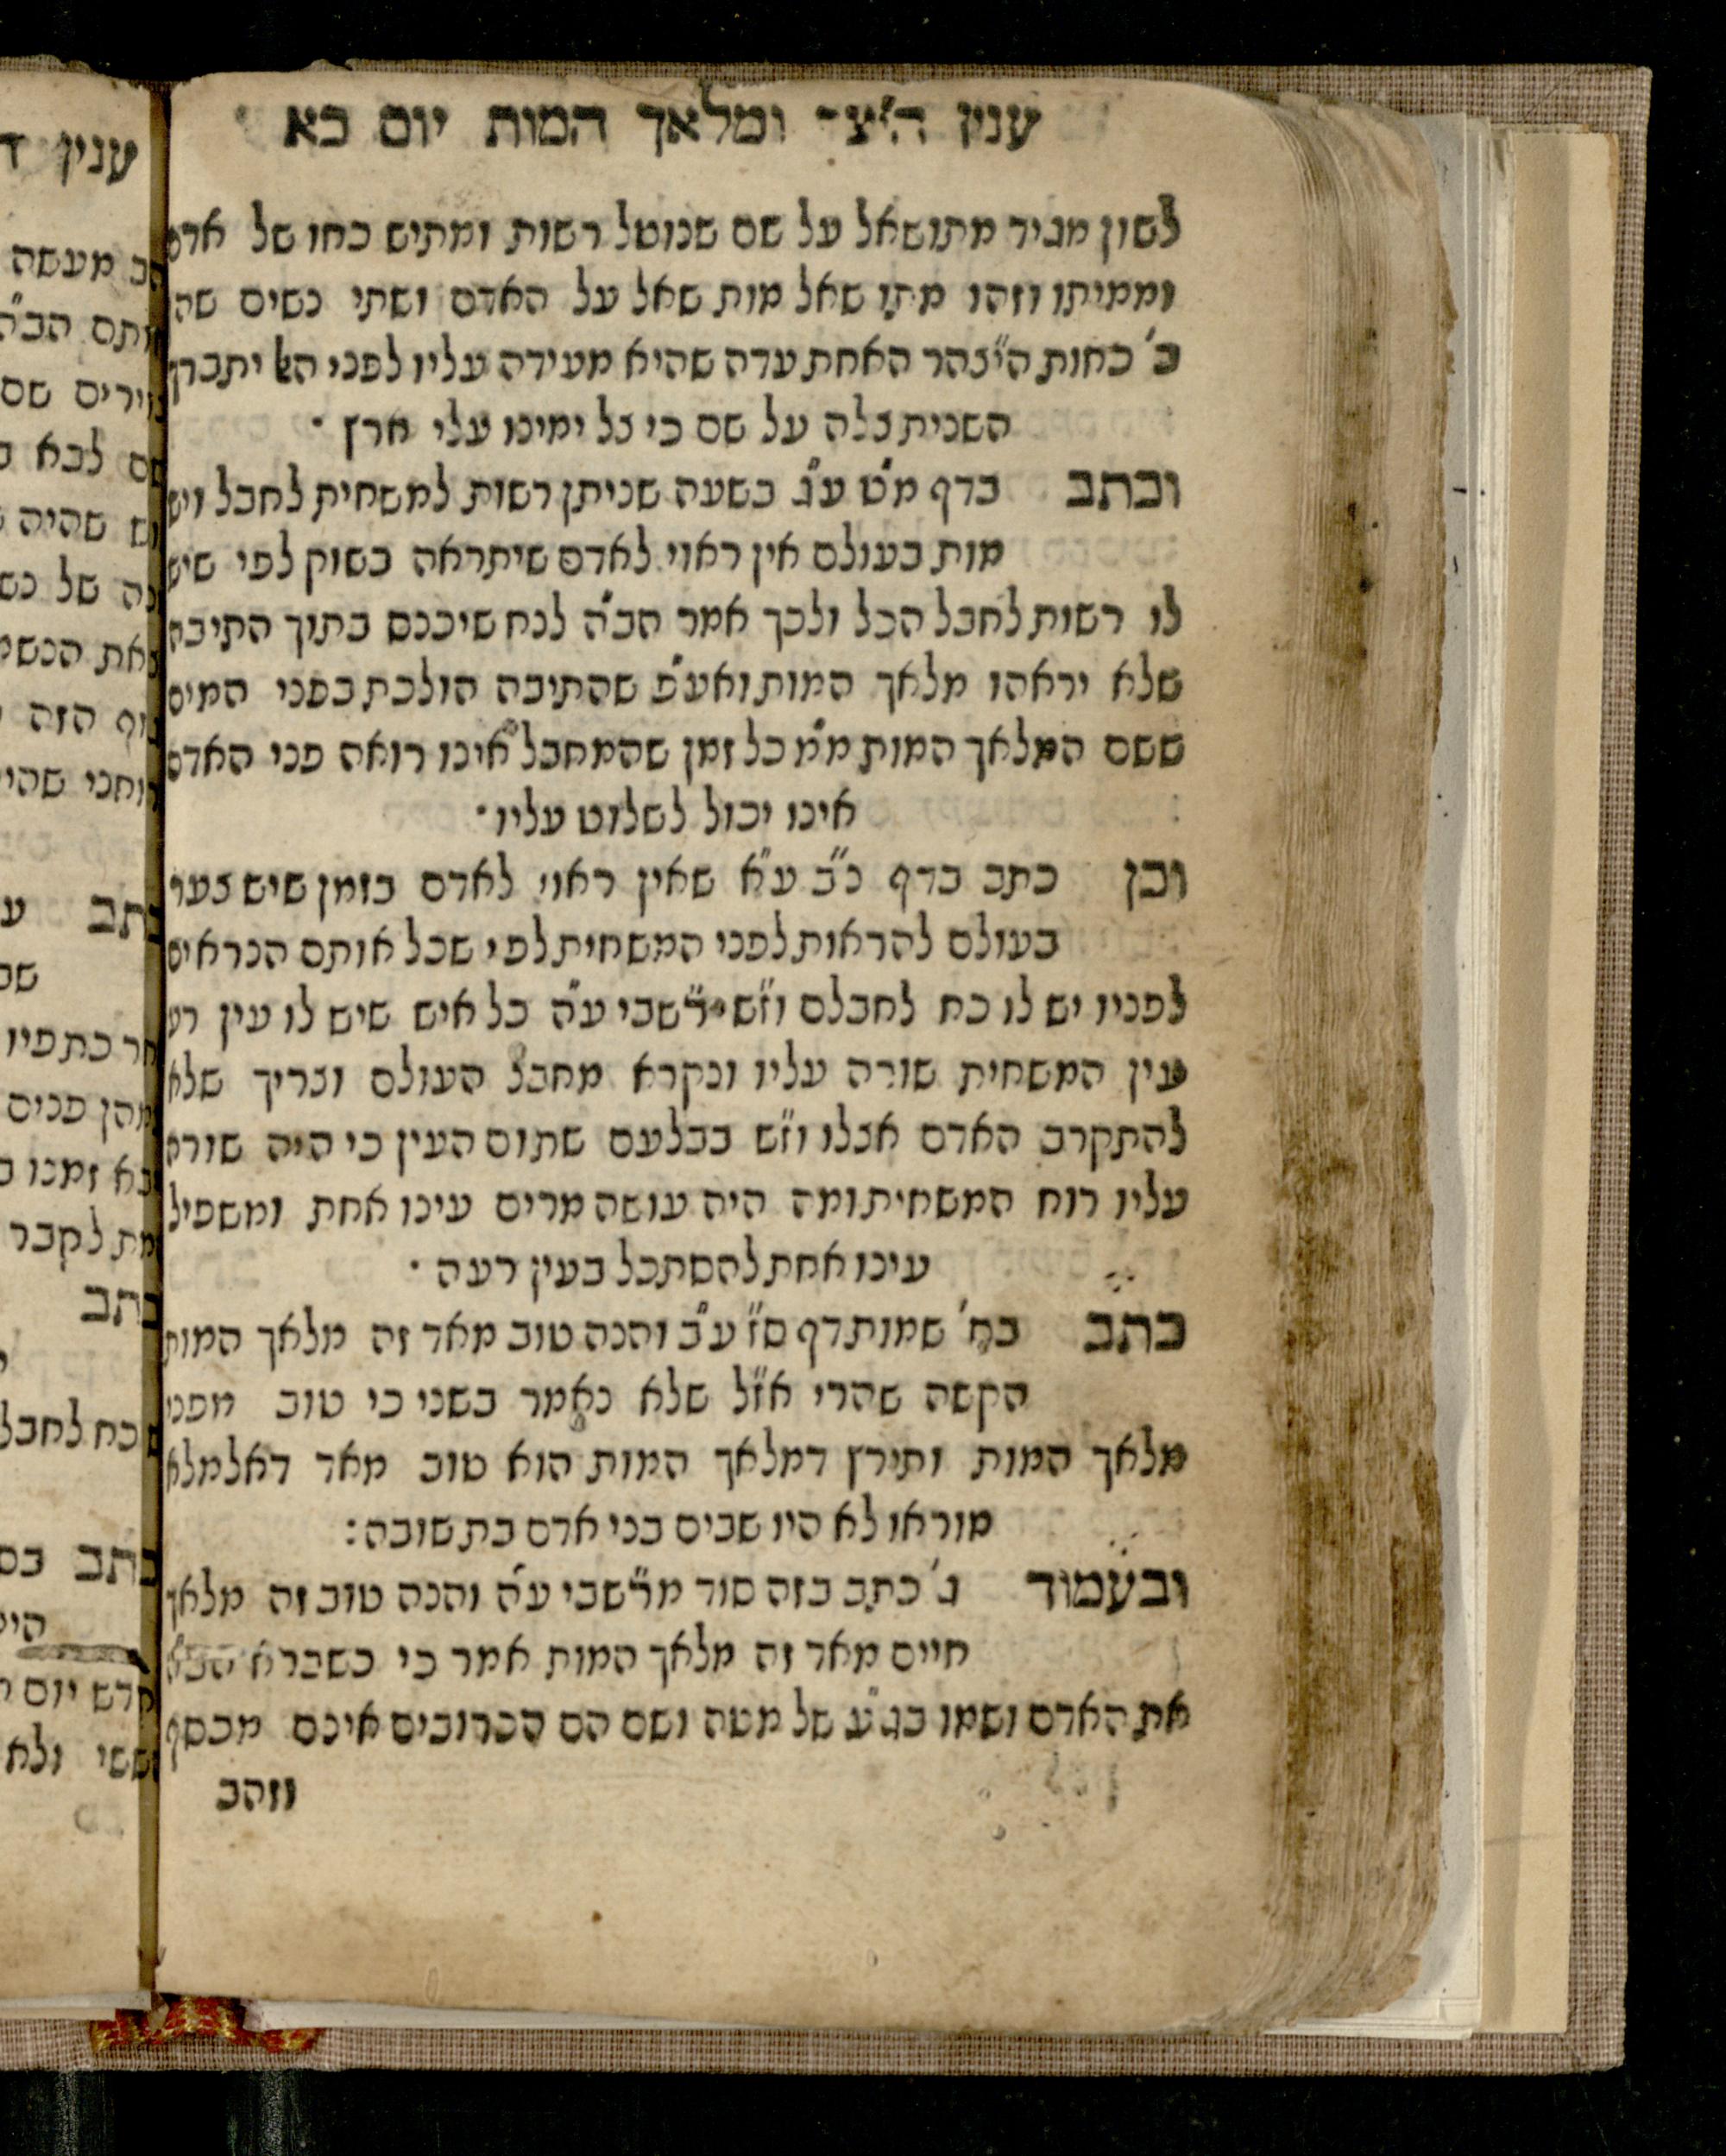 ענין היצ״ ומלאך המות יום כא
לשון מגיד מתושאל על שם שנוטל רשות ומתיש כחו של אדם
וממיתו וזהו מתו שאל מות שאל על האדם ושתי נשים שהן
ב׳ כחות הי״צהר האחת עדה שהיא מעידה עליו לפני הש׳ יתברך
השנית צלה על שם כי צל ימינו עלי ארץ ·
וכתב בדף מ״ט ע״ג בשעה שניתן רשות למשחית לחבל ויש
מות בעולם אין ראוי לאדם שיתראה בשוק לפי שיש
לו רשות לחבל הכל ולכך אמר הב״ה לנח שיכנס בתוך התיבה
שלא יראהו מלאך המות ואע״פ שהתיבה הולכת בפני המים
ששם המלאך המות מ״מ כל זמן שהמחבל אינו רואה פני האדם
אינו יכול לשלוט עליו ·
וכן כתב בדף כ״ב ע״א שאין ראוי לאדם בזמן שיש צער
בעולם להראות לפני המשחית לפי שכל אותם הנראים
לפניו יש לו כח לחבלם וז״ש רשב״י ע״ה כל איש שיש לו עין רע
עין המשחית שורה עליו ונקרא מחבל העולם וצריך שלא
להתקרב האדם אצלו וז״ש בבלעם שתום העין כי היה שורה
עליו רוח המשחית ומה היה עושה מרים עינו אחת ומשפיל
עינו אחת להסתכל בעין רעה ·
כתב בח׳ שמות דף ס״ז ע״ב והנה טוב מאד זה מלאך המות
הקשה שהרי אז״ל שלא נאמר בשני כי טוב מפני
מלאך המות ותירץ דמלאך המות הוא טוב מאד דאלמלא
מוראו לא היו שבים בני אדם בתשובה :
ובעמוד ג׳ כתב בזה סוד מרשב״י ע״ה והנה טוב זה מלאך
חיים מאד זה מלאך המות אמר כי כשברא הב״ה
את האדם ושמו בג״ע של מטה ושם הם הכרובים אינם מכסף
וזהב